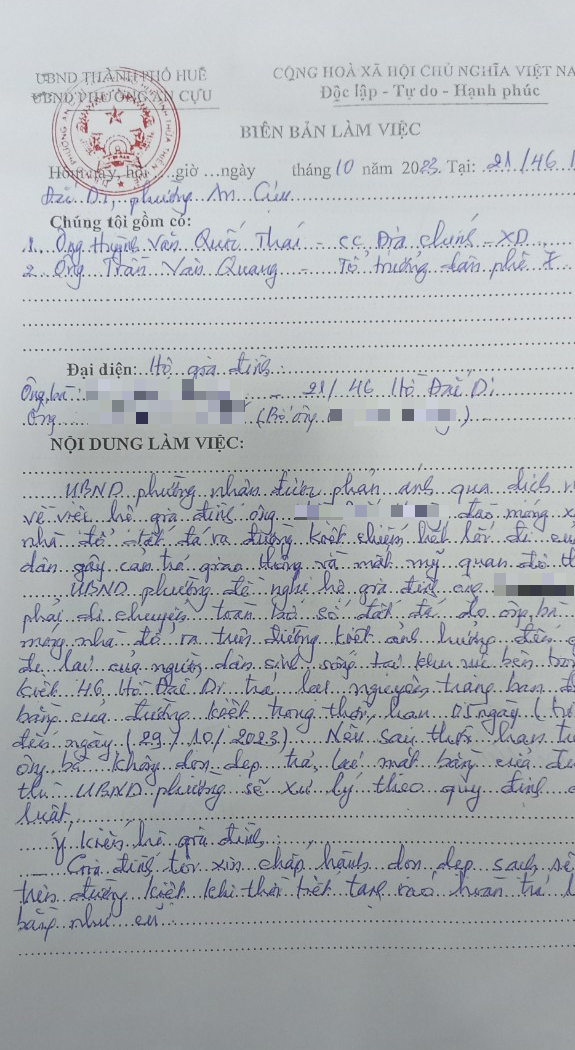 UBND THÀNH PHỐ HUẾ
UBND PHƯỜNG AN CỰU
CỘNG HOÀ XÃ HỘI CHỦ NGHĨA VIỆT NA
Độc lập - Tự do - Hạnh phúc
BIÊN BẢN LÀM VIỆC
Hôm nay, hồi ....giờ ...ngày tháng 10 năm 2023. Tại: 21/46
Đắc Di, phường An Cựu
Chúng tôi gồm có:
1. Ông Huỳnh Văn Quốc Thái - CC Địa chính - XD
2. Ông Trần Văn Quang - Tổ trưởng dân phố
Đại diện: Hộ gia đình:
Ông, bà: - 21/46 Hồ Đắc Di
Ông (Bố ông )
NỘI DUNG LÀM VIỆC:
UBND phường nhận được phản ánh qua
về việc hộ gia đình ông đào móng
nhà đổ đất đá ra đường kiệt chiếm hết lối đi
dân gây cản trở giao thông và mất mỹ quan đô
UBND phường đề nghị hộ gia đình ông
phải di chuyển toàn bộ số đất đá do ông bà
móng nhà đổ ra trên đường kiệt ảnh hưởng đến
đi lại của người dân sinh sống tại khu vực bên
kiệt 46 Hồ Đắc Di trả lại nguyên trạng ban
bằng của đường kiệt trong thời hạn 05 ngày
đến ngày (29/10/2023). Nếu sau thời hạn
ông bà không dọn dẹp trả lại mặt bằng của
thì UBND phường sẽ xử lý theo quy định
luật.
Ý kiến hộ gia đình:
Gia đình tôi xin chấp hành dọn dẹp sạch sẽ
trên đường kiệt khi thời tiết tạnh ráo hoàn trả
bằng như cũ.